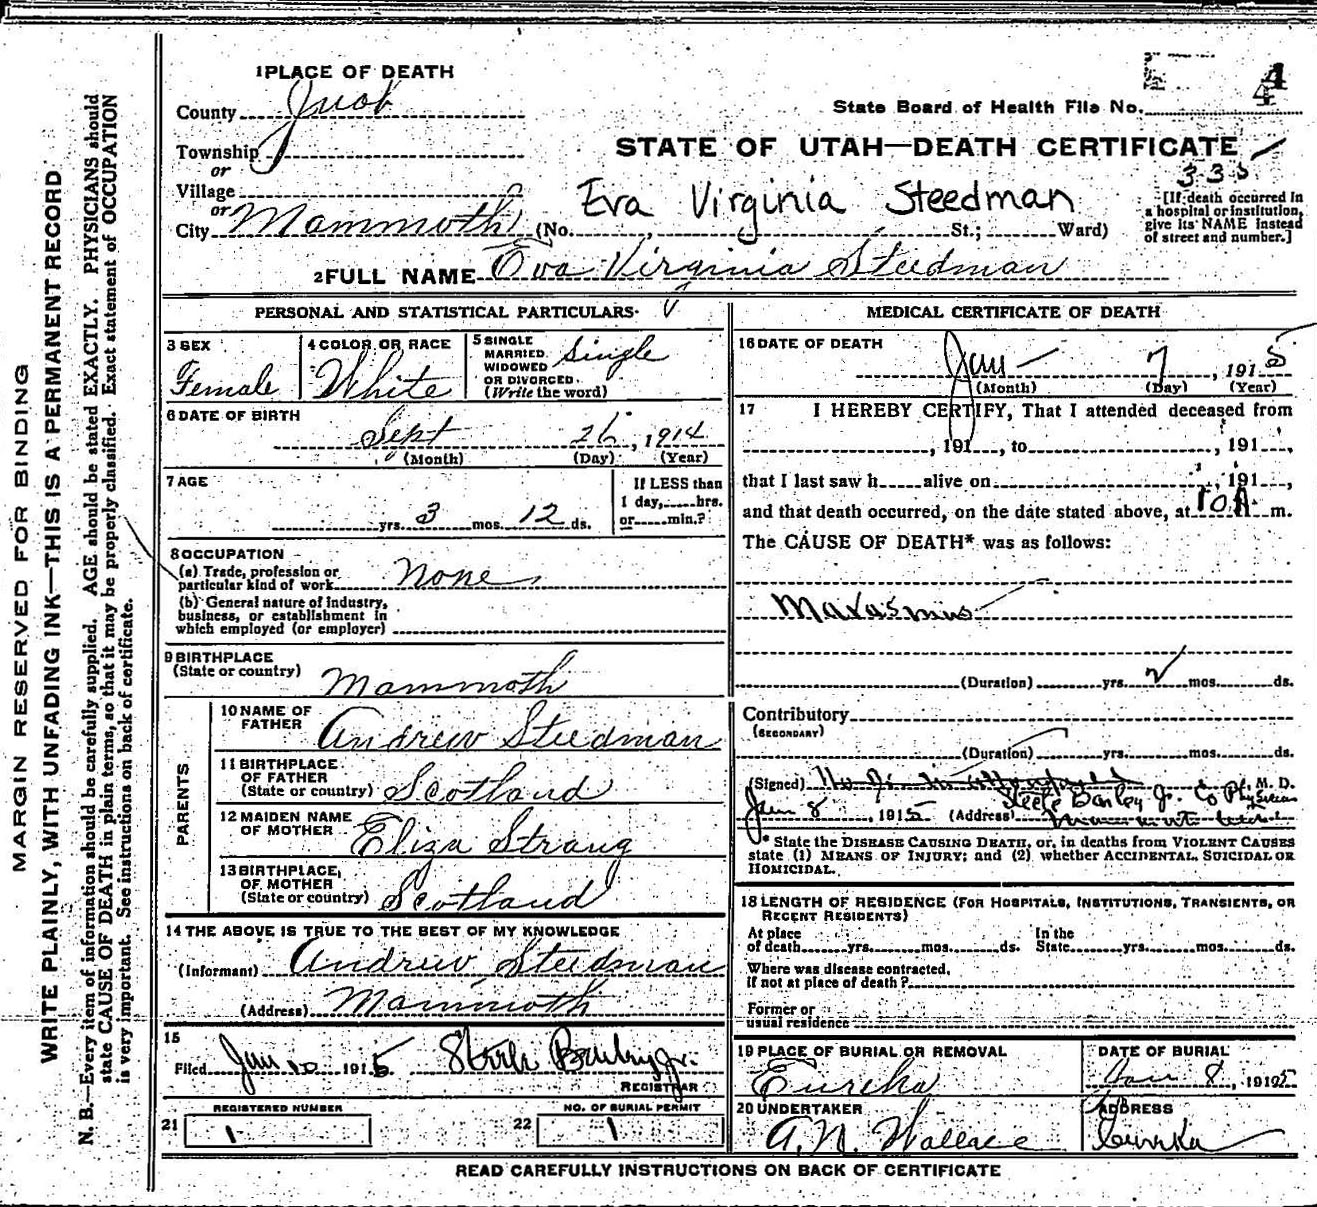 1 PLACE OF DEATH
County Juab
Township
or
Village
or
City Mammoth (No. , St.; Ward)
State Board of Health File No. 4
4
STATE OF UTAH—DEATH CERTIFICATE
335
[If death occurred in
a hospital or institution,
give its NAME instead
of street and number.]
Eva Virginia Steedman
2 FULL NAME Eva Virginia Steedman
PERSONAL AND STATISTICAL PARTICULARS
3 SEX
Female
4 COLOR OR RACE
White
5 SINGLE
MARRIED
WIDOWED
OR DIVORCED
(Write the word)
Single
6 DATE OF BIRTH
Sept 26, 1914
(Month) (Day) (Year)
7 AGE
yrs. 3 mos. 12 ds.
If LESS than
1 day, hrs.
or min.?
8 OCCUPATION
(a) Trade, profession or
particular kind of work None
(b) General nature of industry,
business, or establishment in
which employed (or employer)
9 BIRTHPLACE
(State or country) Mammoth
PARENTS
10 NAME OF
FATHER Andrew Steedman
11 BIRTHPLACE
OF FATHER
(State or country) Scotland
12 MAIDEN NAME
OF MOTHER Eliza Strang
13 BIRTHPLACE,
OF MOTHER
(State or country) Scotland
14 THE ABOVE IS TRUE TO THE BEST OF MY KNOWLEDGE
(Informant) Andrew Steedman
(Address) Mammoth
15
Filed Jan 10 1915 Steele Bailey Jr.
REGISTRAR
REGISTERED NUMBER
21 1
NO. OF BURIAL PERMIT
22 1
MEDICAL CERTIFICATE OF DEATH
16 DATE OF DEATH
Jan 7, 1915
(Month) (Day) (Year)
17 I HEREBY CERTIFY, That I attended deceased from
, 191 , to , 191 ,
that I last saw h alive on , 191 ,
and that death occurred, on the date stated above, at 10 A m.
The CAUSE OF DEATH* was as follows:
Marasmus
(Duration) yrs. 2 mos. ds.
Contributory
(SECONDARY)
(Duration) yrs. mos. ds.
(Signed) M. D.
Steele Bailey Jr. Co Physician
Jan 8, 1915 (Address)
* State the DISEASE CAUSING DEATH, or, in deaths from VIOLENT CAUSES
state (1) MEANS OF INJURY; and (2) whether ACCIDENTAL, SUICIDAL OR
HOMICIDAL.
18 LENGTH OF RESIDENCE (FOR HOSPITALS, INSTITUTIONS, TRANSIENTS, OR
RECENT RESIDENTS)
At place In the
of death yrs. mos. ds. State yrs. mos. ds.
Where was disease contracted,
if not at place of death?
Former or
usual residence
19 PLACE OF BURIAL OR REMOVAL
Eureka
DATE OF BURIAL
Jan 8, 1915
20 UNDERTAKER
A. N. Wallace
ADDRESS
Eureka
READ CAREFULLY INSTRUCTIONS ON BACK OF CERTIFICATE
MARGIN RESERVED FOR BINDING
WRITE PLAINLY, WITH UNFADING INK—THIS IS A PERMANENT RECORD
N. B.—Every item of information should be carefully supplied. AGE should be stated EXACTLY. PHYSICIANS should
state CAUSE OF DEATH in plain terms, so that it may be properly classified. Exact statement of OCCUPATION
is very important. See instructions on back of certificate.